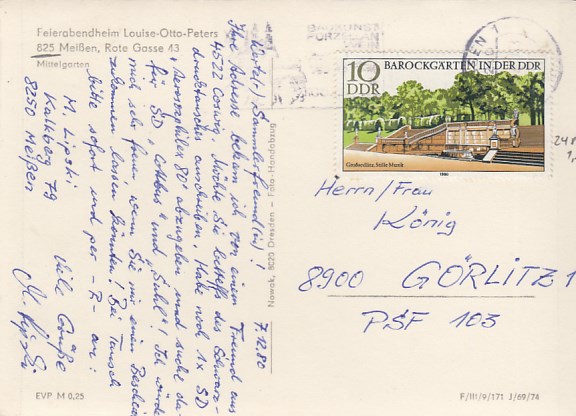 Feierabendheim Louise-Otto-Peters
825 Meißen, Rote Gasse 43
Mittelgarten
BAUKUNST
PORZELLAN
WEIN
BAROCKGÄRTEN IN DER DDR
10
DDR
Großsedlitz, Stille Musik
1980
7.12.80
Werte(r) Sammlerfreund(in)!
Ihre Adresse bekam ich von einem Freund aus
4522 Coswig. Möchte Sie betreffs des Schwarz-
druckes anschreiben. Habe noch 1x SD
"Barockgärten 80" abzugeben und suche da-
für SD "Cottbus" und "Suhl"! Ich würde
mich sehr freuen, wenn Sie mir einen Bescheid
zukommen lassen könnten! Bei Tausch
bitte sofort und per -R- an:
M. Lipski
Kalkberg 79
8250 Meißen
Viele Grüße
M. Lipski
Nowak, 8020 Dresden – Foto-Handabzug
Herrn/Frau
König
8900 GÖRLITZ 1
PSF 103
EVP M 0,25
F/III/9/171 J/69/74